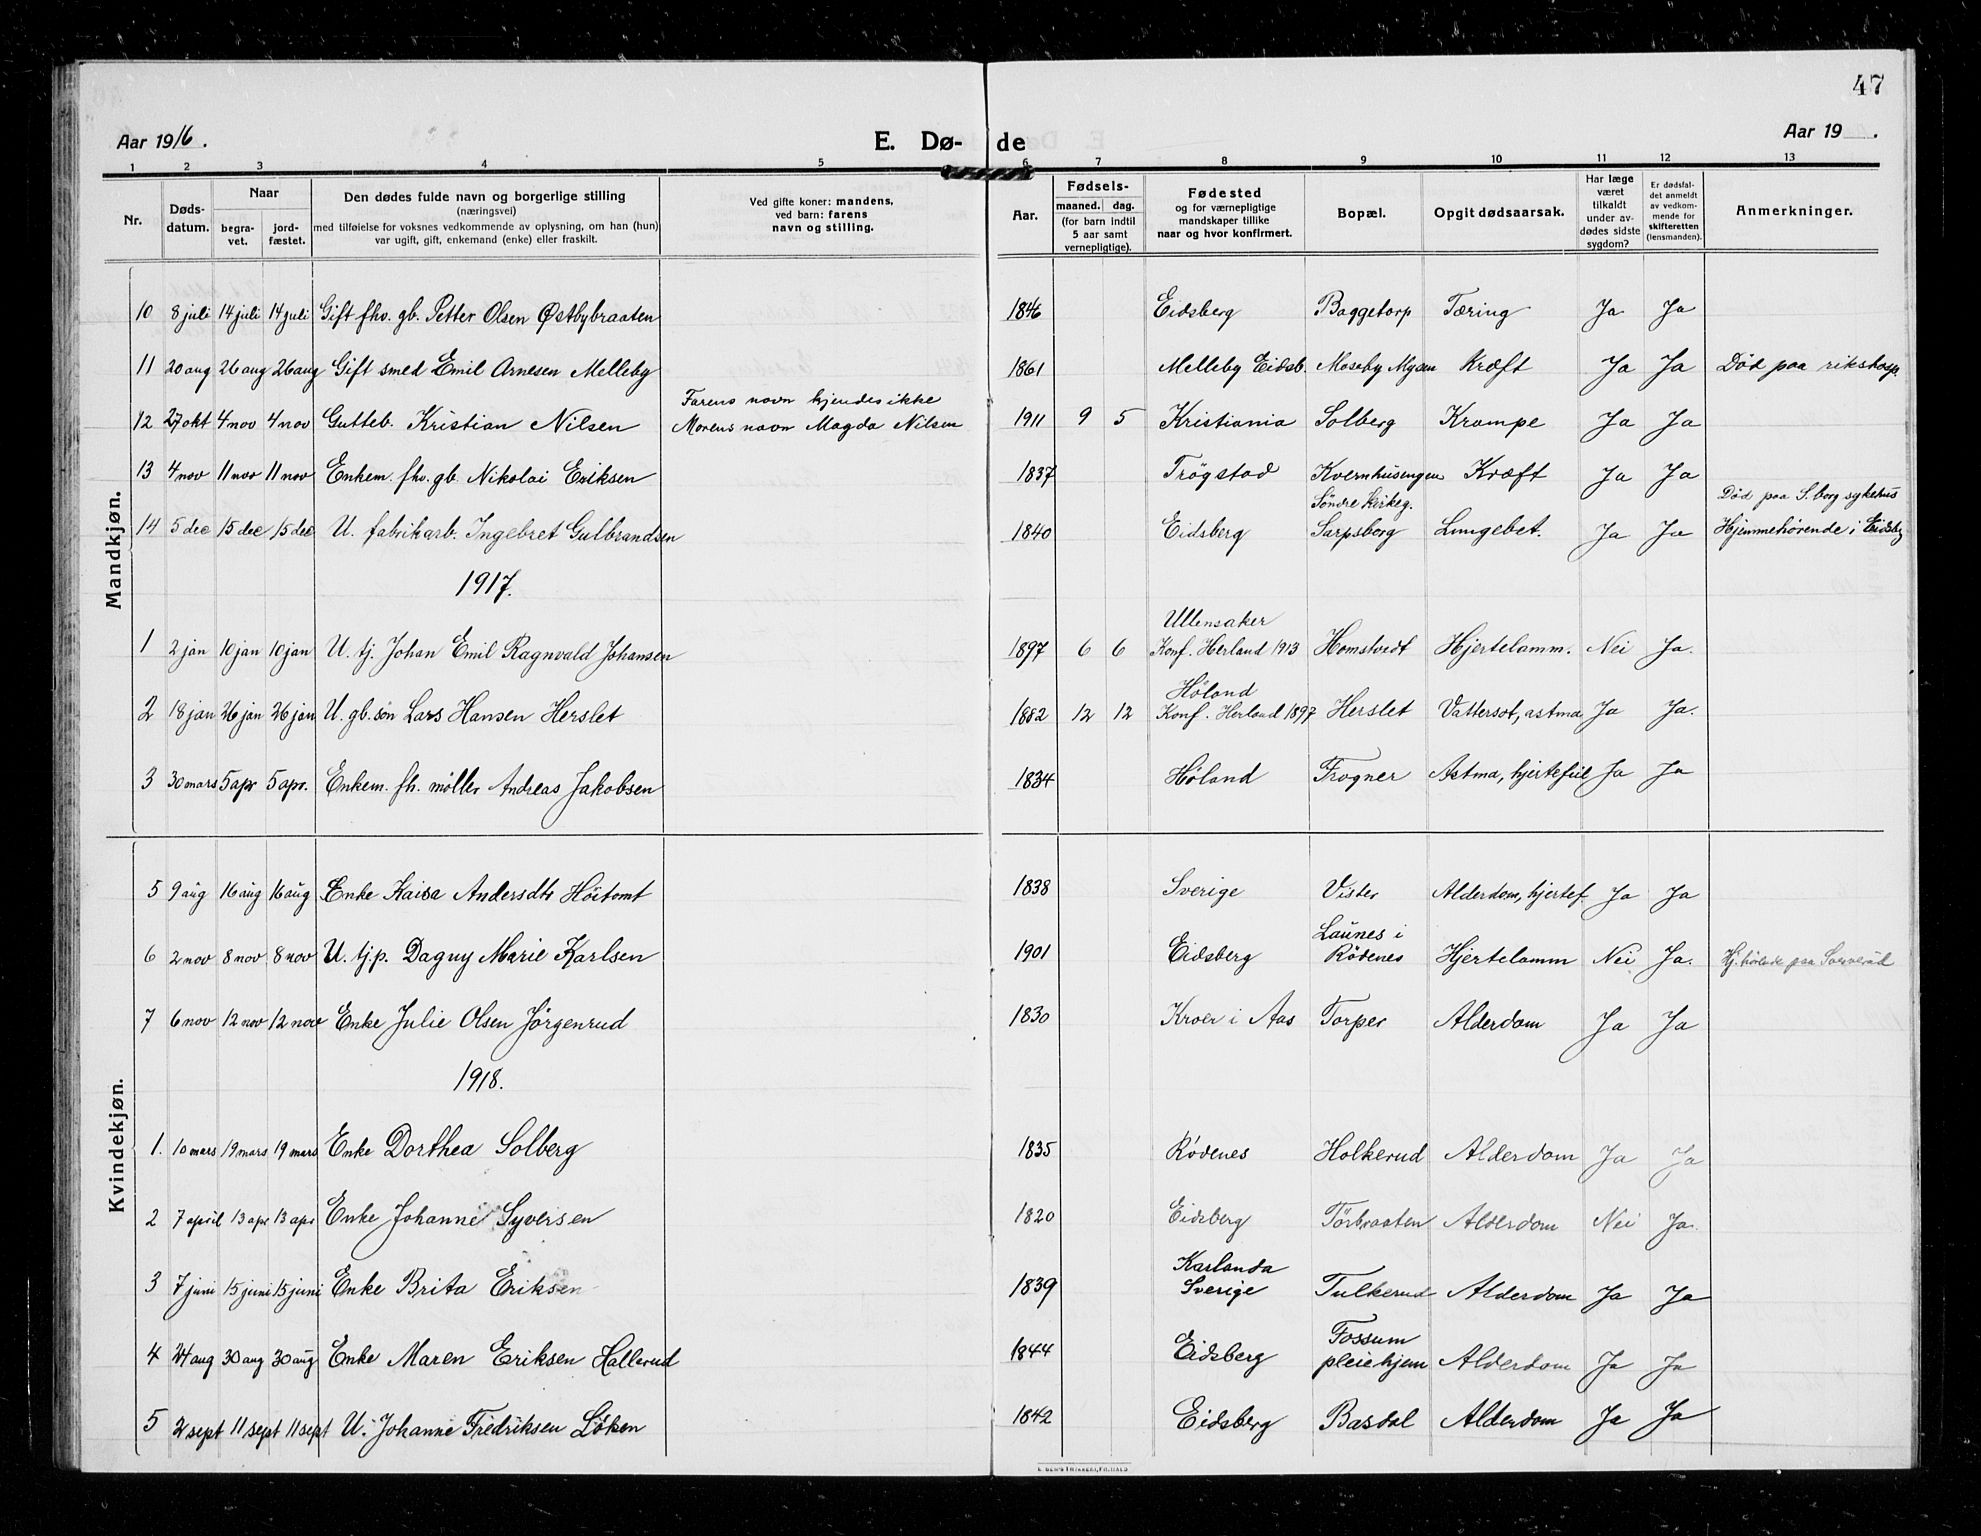 47
Aar 1916.
E. Dø- de
Aar 19 .
1 2 3 4 5 6 7 8 9 10 11 12 13
Nr.
Døds-
datum.
Naar
begra-
vet.
jord-
fæstet.
Den dødes fulde navn og borgerlige stilling
(næringsvei)
med tilføielse for voksnes vedkommende av oplysning, om han (hun)
var ugift, gift, enkemand (enke) eller fraskilt.
Ved gifte koner: mandens,
ved barn: farens
navn og stilling.
Aar.
Fødsels-
maaned. dag.
(for barn indtil
5 aar samt
vernepligtige).
Fødested
og for værnepligtige
mandskaper tillike
naar og hvor konfirmert.
Bopæl.
Opgit dødsaarsak.
Har læge
været
tilkaldt
under av-
dødes sidste
sygdom?
Er dødsfal-
det anmeldt
av vedkom-
mende for
skifteretten
(lensmanden).
Anmerkninger.
Mandkjøn.
10 8 juli 14 juli 14 juli Gift fhv. gb. Petter Olsen Østbybraaten 1846 Eidsberg Baggetorp Tæring Ja Ja
11 20 aug 26 aug 26 aug Gift smed Emil Arnesen Melleby 1861 Melleby Eidsb. Moseby Mysen Kræft Ja Ja Død paa rikshosp.
Farens navn kjendes ikke
12 27 okt 4 nov 4 nov Gutteb. Kristian Nilsen Morens navn Magda Nilsen 1911 9 5 Kristiania Solberg Krampe Ja Ja
13 4 nov 11 nov 11 nov Enkem. fhv. gb. Nikolai Eriksen 1837 Trøgstad Kvernhusengen Kræft Ja Ja
Søndre Kirkeg. Død paa S.borg sykehus
14 5 dec 15 dec 15 dec U. fabrikarb. Ingebret Gulbrandsen 1840 Eidsberg Sarpsborg Lungebet. Ja Ja Hjemmehørende i Eidsbg
1917.
Ullensaker
1 2 jan 10 jan 10 jan U. tj. Johan Emil Ragnvald Johansen 1897 6 6 Konf. Herland 1913 Homstvedt Hjertelamm. Nei Ja.
Høland
2 18 jan 26 jan 26 jan U. gb. søn Lars Hansen Herslet 1882 12 12 Konf. Herland 1897 Herslet Vattersot, astma Ja Ja.
3 30 mars 5 apr 5 apr. Enkem. fh. møller Andreas Jakobsen 1834 Høland Frogner Astma, hjertefeil Ja Ja
Kvindekjøn.
5 9 aug 16 aug 16 aug Enke Kaisa Andersdtr Höitomt 1838 Sverige Vister Alderdom, hjertef Ja Ja
Launes i
6 2 nov 8 nov 8 nov U. tj.p. Dagny Marie Karlsen 1901 Eidsberg Rödenes Hjertelamm Nei Ja. Hj. paa
7 6 nov 12 nov 12 nov Enke Julie Olsen Jörgenrud 1830 Kroer i Aas Torper Alderdom Ja Ja
1918.
1. 10 mars 19 mars 19 mars Enke Dorthea Solberg 1835 Rödenes Holkerud Alderdom Ja Ja
2 7 april 13 apr 13 apr Enke Johanne Syversen 1820 Eidsberg Törbraaten Alderdom Nei Ja.
Karlanda
3 7 juni 15 juni 15 juni Enke Brita Eriksen 1839 Sverige Tulkerud Alderdom Ja Ja
Fossum
4 24 aug 30 aug 30 aug Enke Maren Eriksen Hallerud 1844 Eidsberg pleiehjem Alderdom Ja Ja
5 2 sept 11 sept 11 sept U. Johanne Fredriksen Löken 1842 Eidsberg Basdal Alderdom Ja Ja